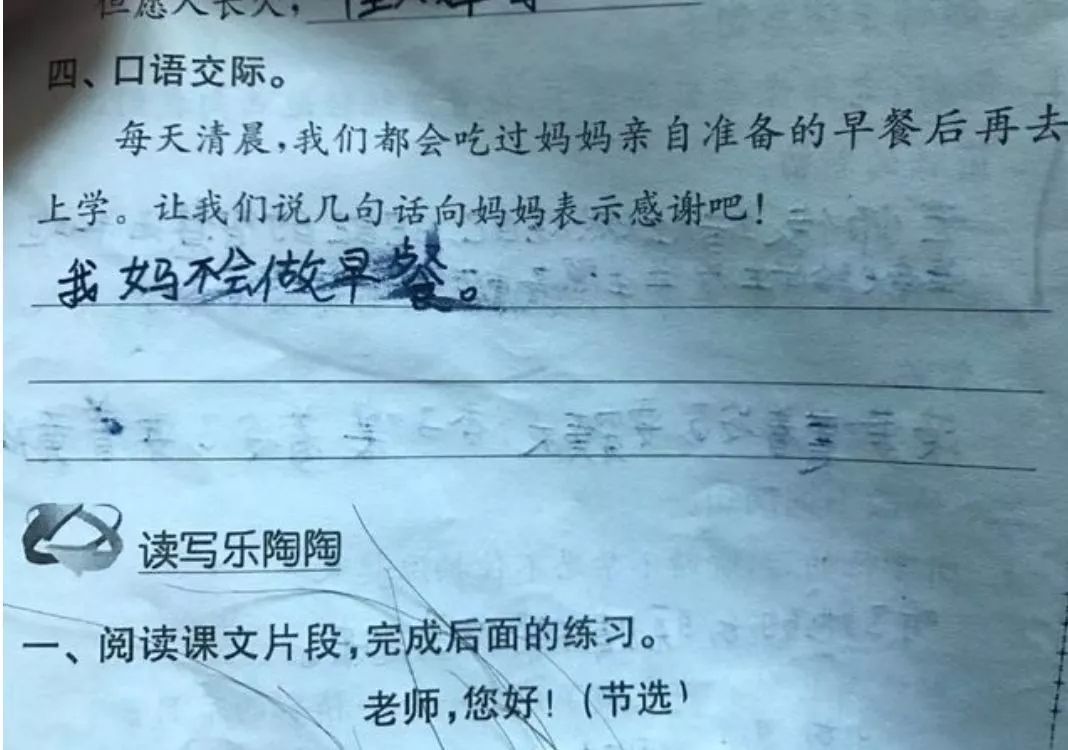 但愿人长久，
四、口语交际。
每天清晨，我们都会吃过妈妈亲自准备的早餐后再去
上学。让我们说几句话向妈妈表示感谢吧！
我妈不会做早餐。
读写乐陶陶
一、阅读课文片段，完成后面的练习。
老师，您好！（节选）